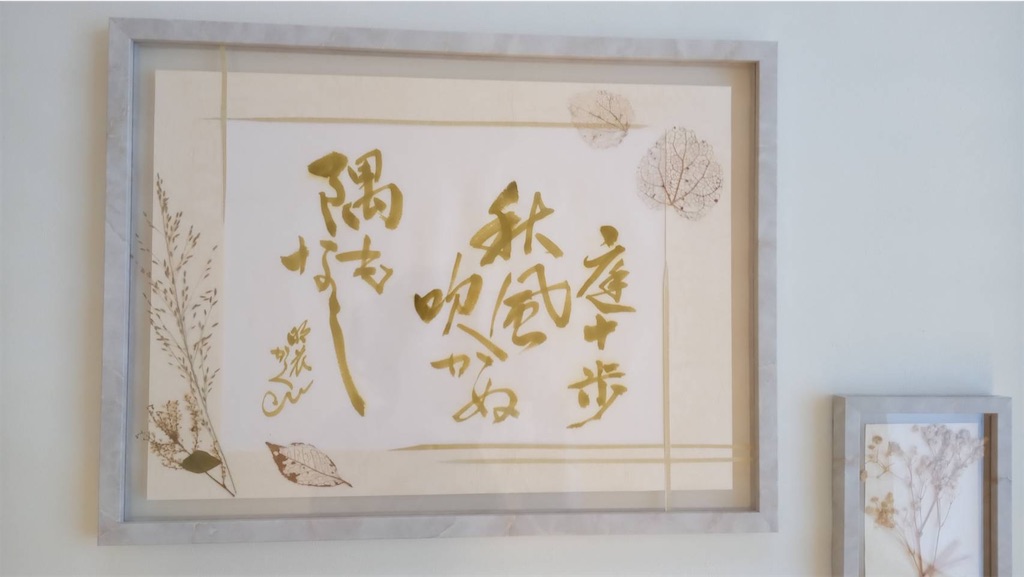 庭十歩
秋風
吹かぬ
隅も
なし
かく